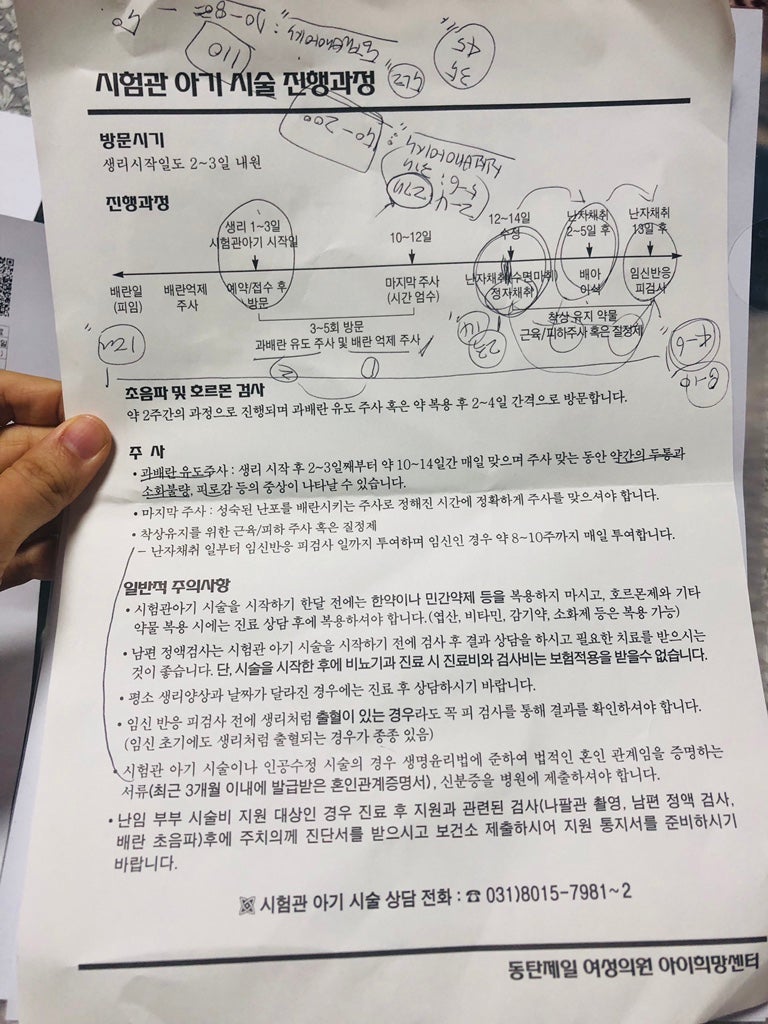 시험관 아기 시술 진행과정
방문시기
생리시작일도 2~3일 내원
진행과정
생리 1~3일
시험관아기 시작일
10~12일
12~14일
수정
난자채취
2~5일 후
난자채취
13일 후
배란일
(피임)
배란억제
주사
예약/접수 후
방문
마지막 주사
(시간 엄수)
난자채취(수면마취)
정자채취
배아
이식
임신반응
피검사
3~5회 방문
과배란 유도 주사 및 배란 억제 주사
착상 유지 약물
근육/피하주사 혹은 질정제
② ①
4-6
8-10
초음파 및 호르몬 검사
약 2주간의 과정으로 진행되며 과배란 유도 주사 혹은 약 복용 후 2~4일 간격으로 방문합니다.
주 사
• 과배란 유도주사 : 생리 시작 후 2~3일째부터 약 10~14일간 매일 맞으며 주사 맞는 동안 약간의 두통과
소화불량, 피로감 등의 증상이 나타날 수 있습니다.
• 마지막 주사 : 성숙된 난포를 배란시키는 주사로 정해진 시간에 정확하게 주사를 맞으셔야 합니다.
• 착상유지를 위한 근육/피하 주사 혹은 질정제
– 난자채취 일부터 임신반응 피검사 일까지 투여하며 임신인 경우 약 8~10주까지 매일 투여합니다.
일반적 주의사항
• 시험관아기 시술을 시작하기 한달 전에는 한약이나 민간약제 등을 복용하지 마시고, 호르몬제와 기타
약물 복용 시에는 진료 상담 후에 복용하셔야 합니다.(엽산, 비타민, 감기약, 소화제 등은 복용 가능)
• 남편 정액검사는 시험관 아기 시술을 시작하기 전에 검사 후 결과 상담을 하시고 필요한 치료를 받으시는
것이 좋습니다. 단, 시술을 시작한 후에 비뇨기과 진료 시 진료비와 검사비는 보험적용을 받을수 없습니다.
• 평소 생리양상과 날짜가 달라진 경우에는 진료 후 상담하시기 바랍니다.
• 임신 반응 피검사 전에 생리처럼 출혈이 있는 경우라도 꼭 피 검사를 통해 결과를 확인하셔야 합니다.
(임신 초기에도 생리처럼 출혈되는 경우가 종종 있음)
• 시험관 아기 시술이나 인공수정 시술의 경우 생명윤리법에 준하여 법적인 혼인 관계임을 증명하는
서류(최근 3개월 이내에 발급받은 혼인관계증명서), 신분증을 병원에 제출하셔야 합니다.
• 난임 부부 시술비 지원 대상인 경우 진료 후 지원과 관련된 검사(나팔관 촬영, 남편 정액 검사,
배란 초음파)후에 주치의께 진단서를 받으시고 보건소 제출하시어 지원 통지서를 준비하시기
바랍니다.
시험관 아기 시술 상담 전화 : ☎ 031)8015-7981~2
동탄제일 여성의원 아이희망센터